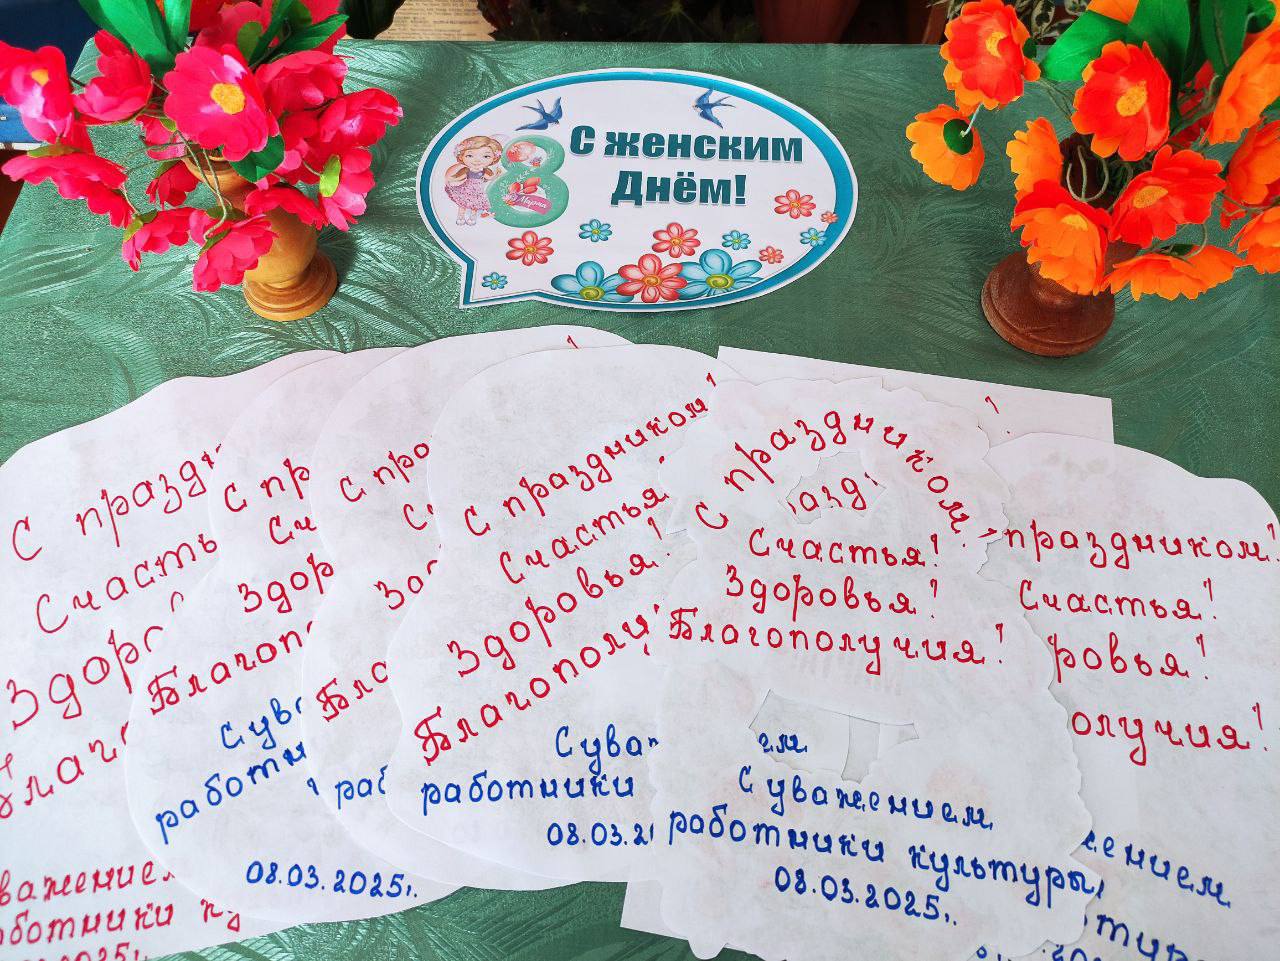 С женским
Днём!
8
Марта
С праздн
Счасть
Здоро
Благо
уважением
аботники ку
2025г.
С пр
Сч
Здор
Благоп
С ува
работни
08.03.2025г.
С про
Сч
Здо
Бла
раб
С праздником!
Счастья
Здоровья!
Благополу
С уваж
работники
08.03.20
С праздником!
азд
Счастья!
Здоровья!
Благополучия!
ем
С уважением
работники культуры!
08.03.2025г.
праздником!
Счастья!
ровья!
олучия!
жением
ьтуры